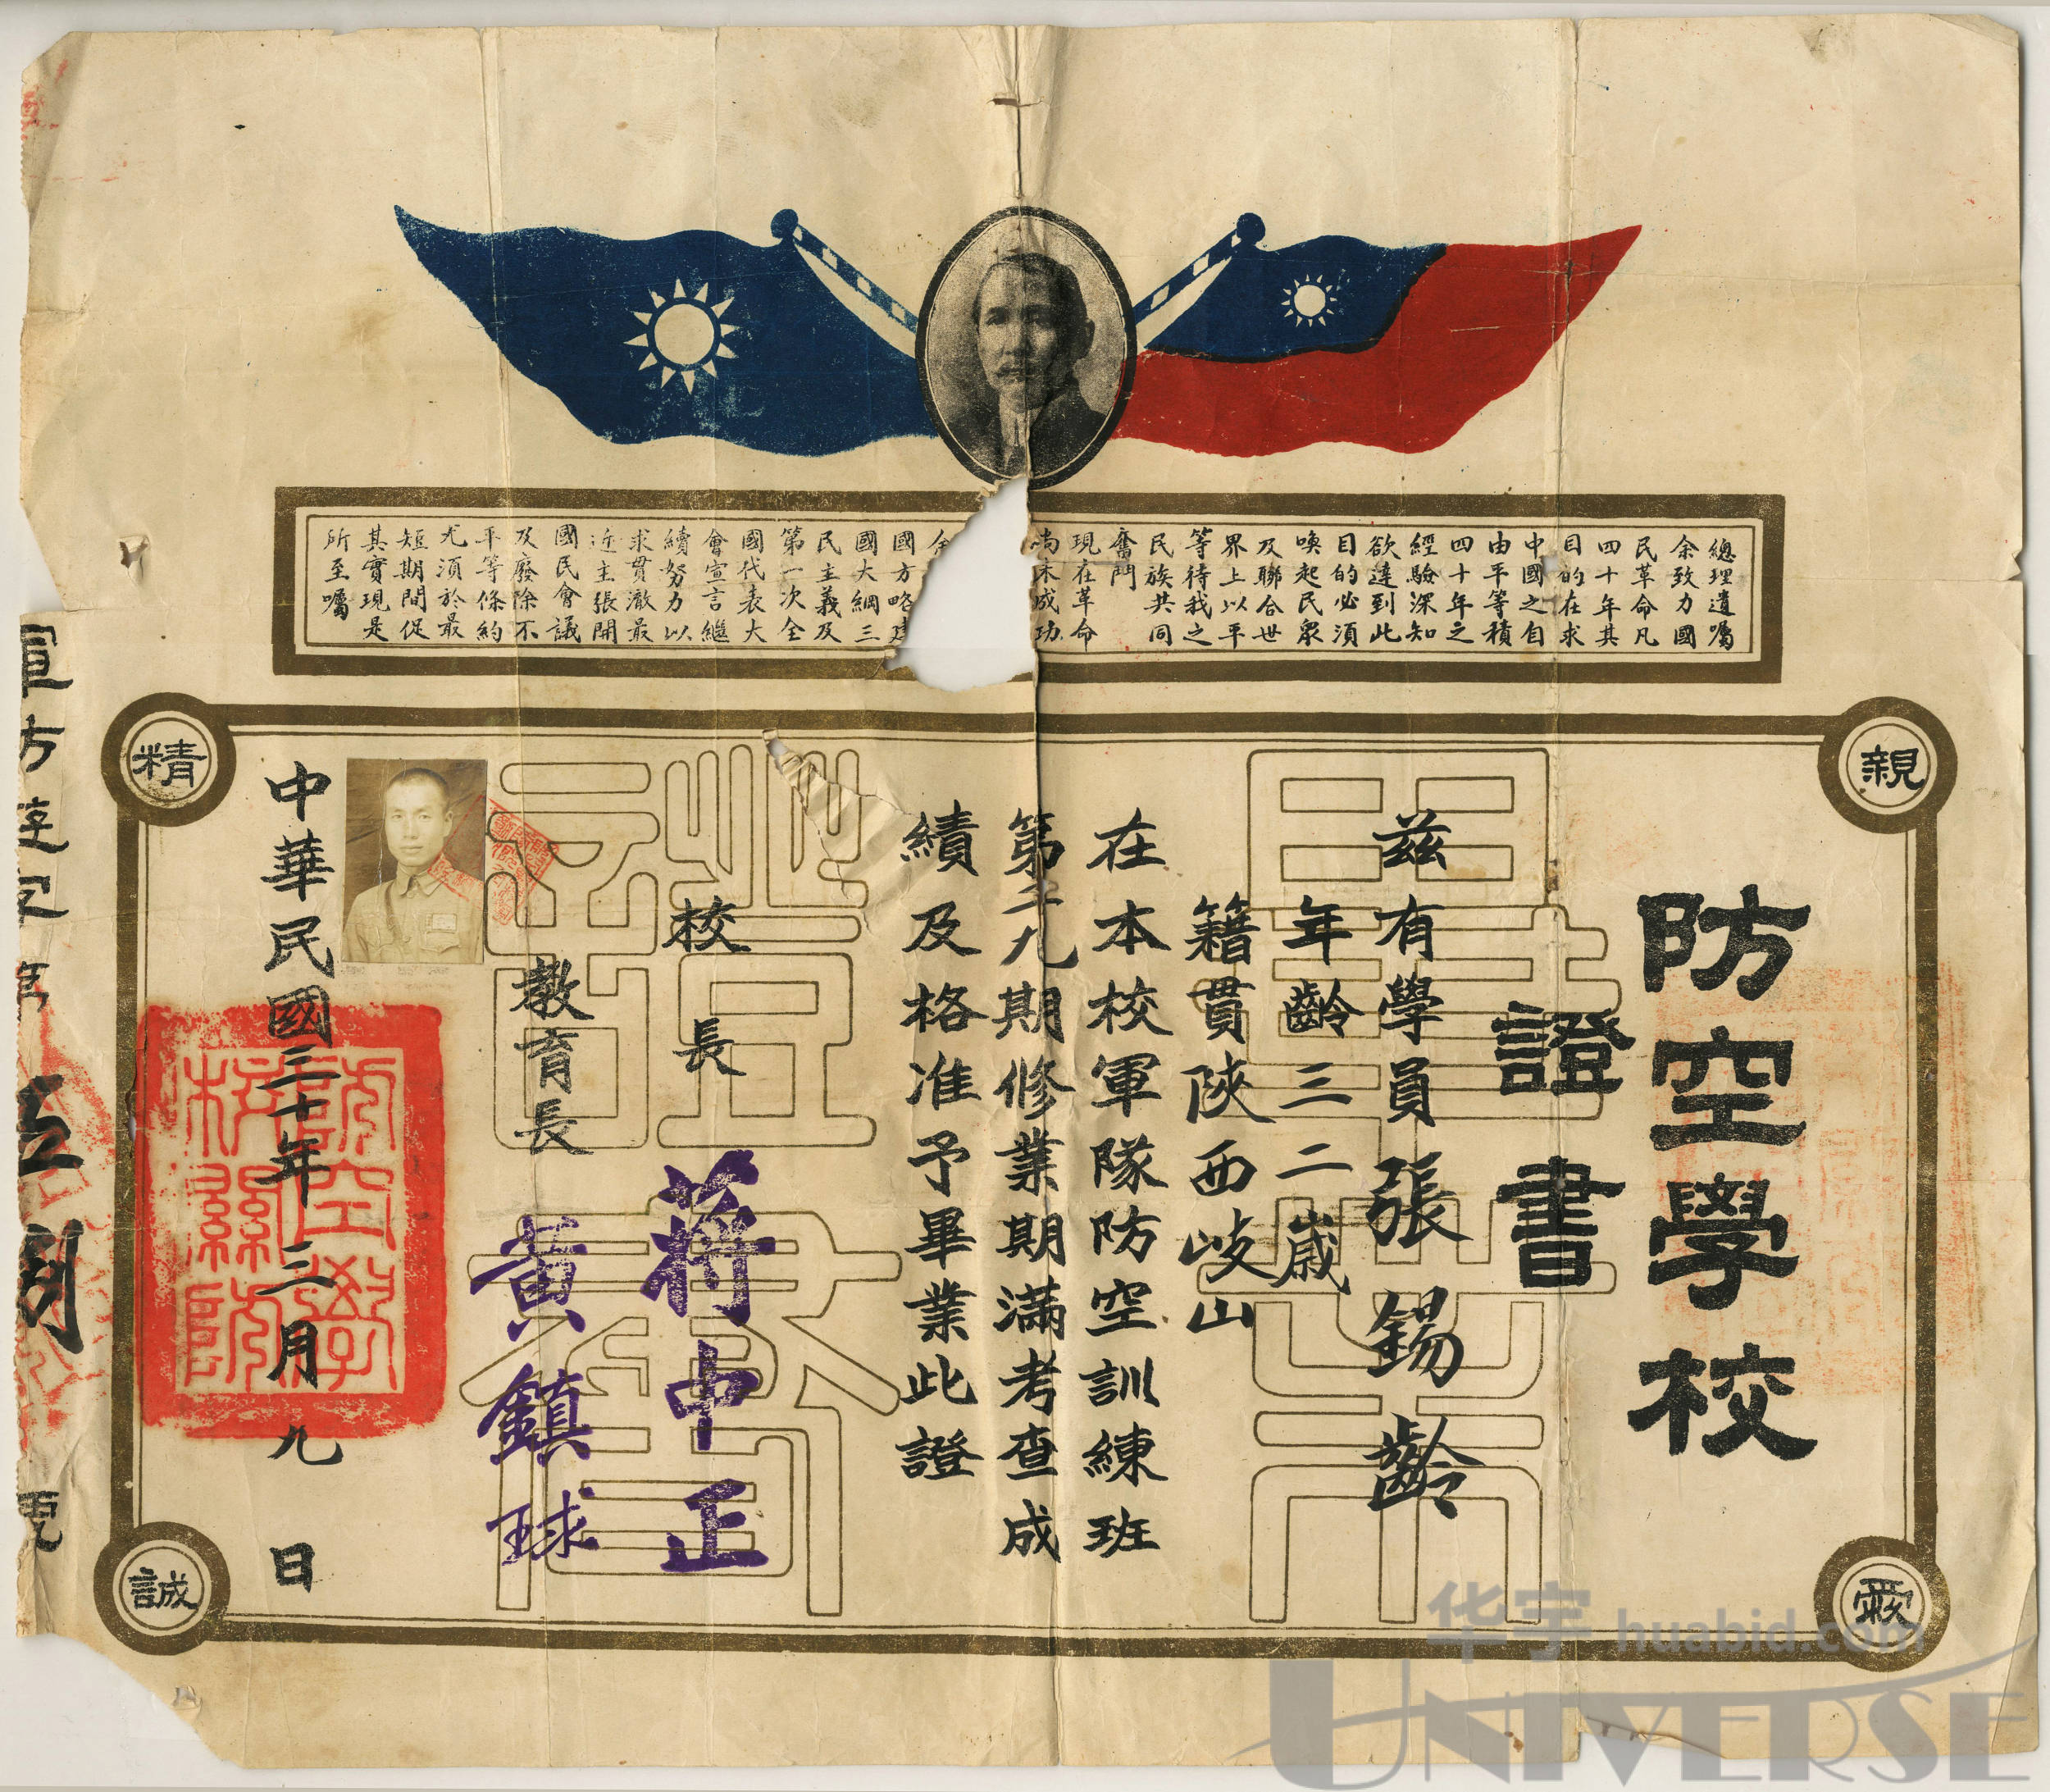 總理遺囑
余致力國
民革命凡
四十年其
目的在求
中國之自
由平等積
四十年之
經驗深知
欲達到此
目的必須
喚起民眾
及聯合世
界上以平
等待我之
民族共同
奮鬥
現在革命
尚未成功
國方略建
國大綱三
民主義及
第一次全
國代表大
會宣言繼
續努力以
求貫澈最
近主張開
國民會議
及廢除不
平等條約
尤須於最
短期間促
其實現是
所至囑
親
愛
精
誠
防空學校
證書
茲有學員張錫齡
年齡三二歲
籍貫陝西岐山
在本校軍隊防空訓練班
第 九期修業期滿考查成
績及格准予畢業此證
校長 蔣中正
教育長 黃鎮球
中華民國三十年三月九日
防空學
校關防
號
华宇 huabid.com
UNIVERSE